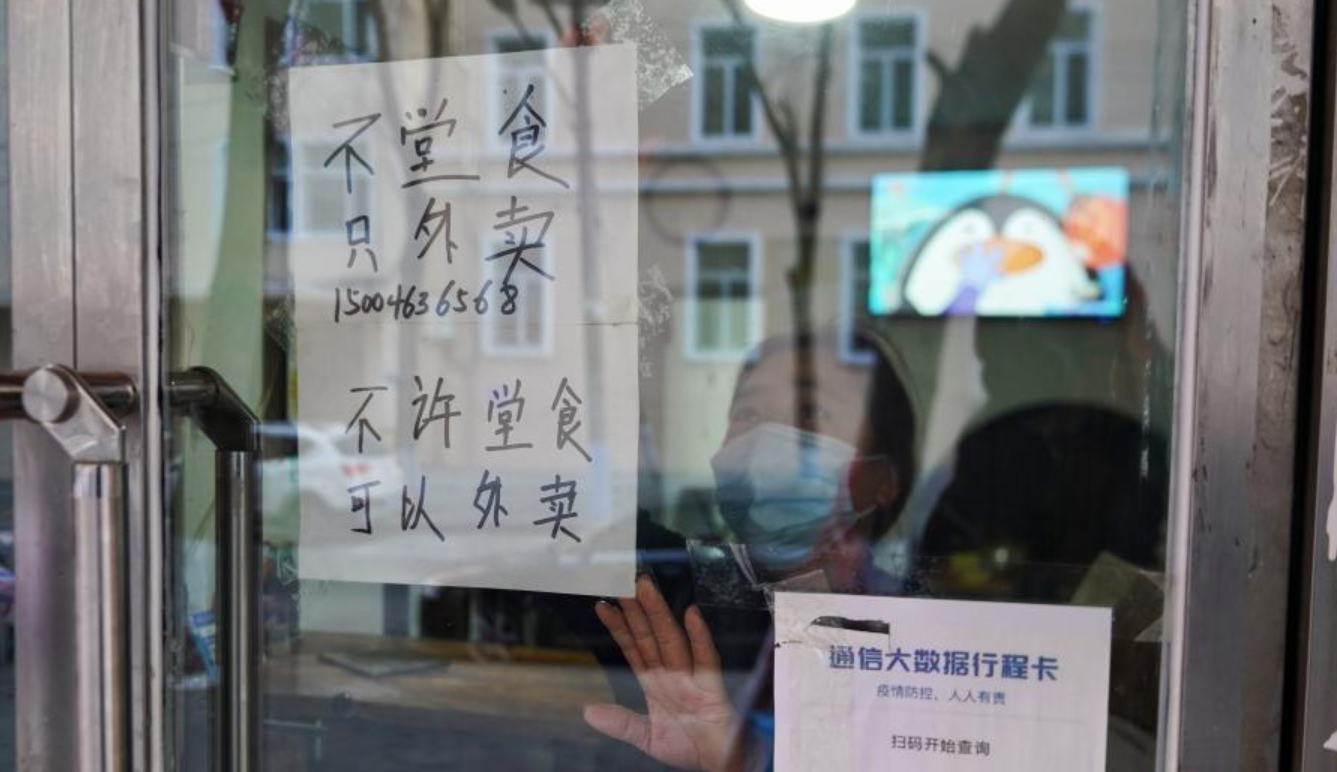 不堂食
只外卖
15004636568
不许堂食
可以外卖
通信大数据行程卡
疫情防控、人人有责
扫码开始查询